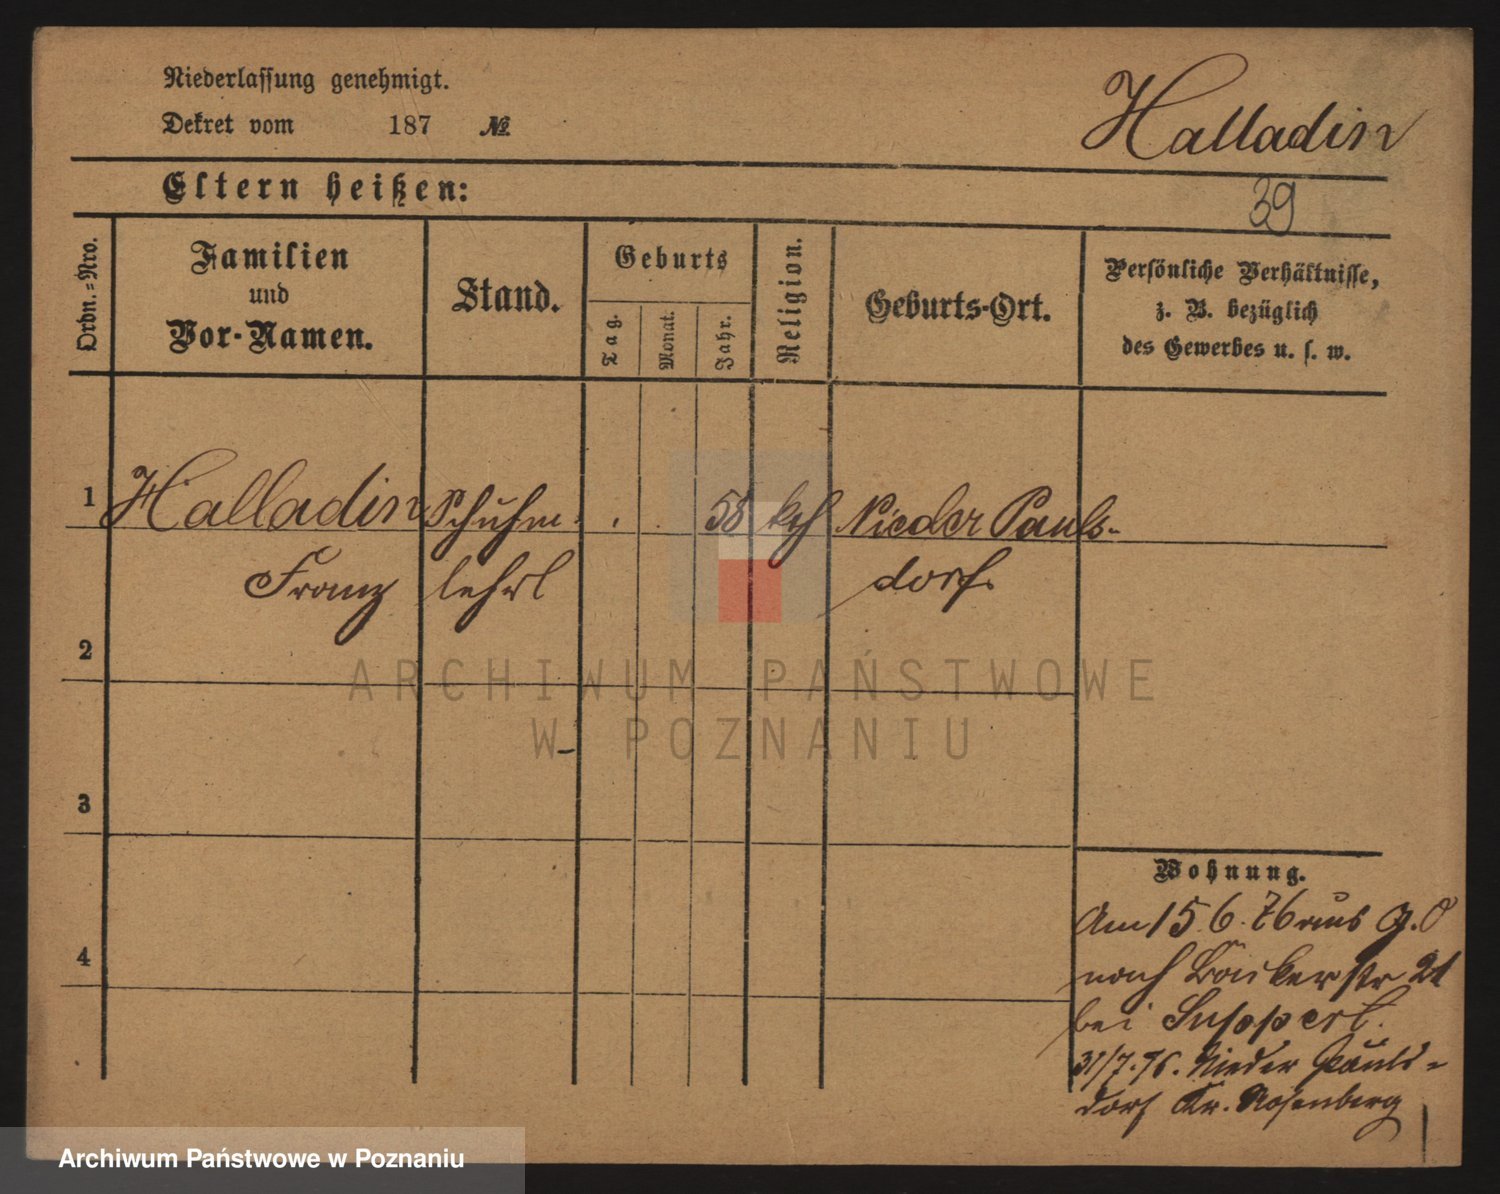 Niederlassung genehmigt.
Dekret vom 187 №
Halladin
Eltern heißen:
39
Ordn.-Nro.
Familien
und
Vor-Namen.
Stand.
Geburts
Tag.
Monat.
Jahr.
Religion.
Geburts-Ort.
Persönliche Verhältnisse,
z. B. bezüglich
des Gewerbes u. s. w.
1 Halladin Schuhm. 58 kth Nieder Pauls-
Franz lehrl dorf.
2
3
4
Wohnung.
Am 15.6.76 aus G.O
nach Bäckerstr 21
bei Suppert.
31/7.76. Nieder Pauls-
dorf Kr. Rosenberg
ARCHIWUM PAŃSTWOWE
W POZNANIU
Archiwum Państwowe w Poznaniu